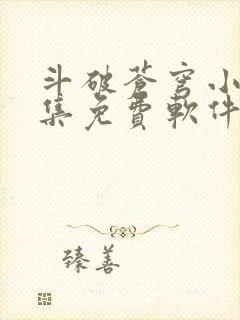 斗破蒼穹小
集免費軟件
臻善